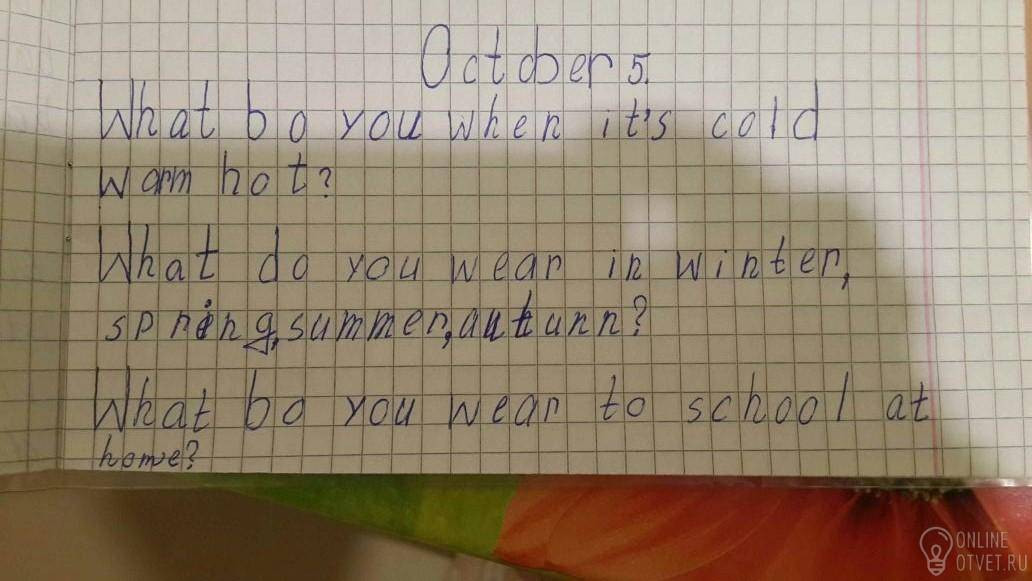 October 5.
What bo you when it's cold
warm hot?
What do you wear in winter,
spring, summer, autunn?
What bo you wear to school at
home?
ONLINE
OTVET.RU